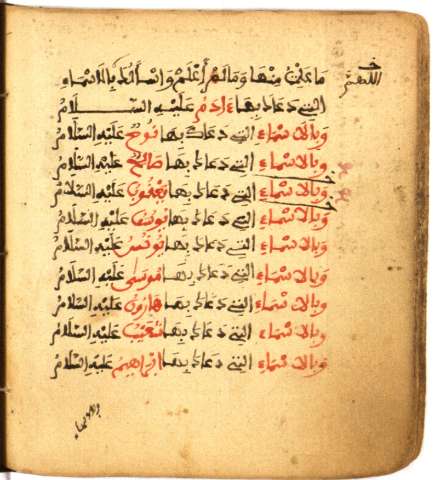 اللهم
مَا عَلِمْتُ مِنْهَا وَمَا لَمْ أَعْلَمْ وَأَسْأَلُكَ بِالْأَسْمَاءِ
الَّتِي دَعَاكَ بِهَا ءَادَمُ عَلَيْهِ السَّلَامُ
وَبِالْأَسْمَاءِ الَّتِي دَعَاكَ بِهَا نُوحٌ عَلَيْهِ السَّلَامُ
وَبِالْأَسْمَاءِ الَّتِي دَعَاكَ بِهَا صَالِحٌ عَلَيْهِ السَّلَامُ
وَبِالْأَسْمَاءِ الَّتِي دَعَاكَ بِهَا يَعْقُوبُ عَلَيْهِ السَّلَامُ
وَبِالْأَسْمَاءِ الَّتِي دَعَاكَ بِهَا يُوسُفُ عَلَيْهِ السَّلَامُ
وَبِالْأَسْمَاءِ الَّتِي دَعَاكَ بِهَا يُونُسُ عَلَيْهِ السَّلَامُ
وَبِالْأَسْمَاءِ الَّتِي دَعَاكَ بِهَا مُوسَى عَلَيْهِ السَّلَامُ
وَبِالْأَسْمَاءِ الَّتِي دَعَاكَ بِهَا هَارُونُ عَلَيْهِ السَّلَامُ
وَبِالْأَسْمَاءِ الَّتِي دَعَاكَ بِهَا شُعَيْبٌ عَلَيْهِ السَّلَامُ
وَبِالْأَسْمَاءِ الَّتِي دَعَاكَ بِهَا إِبْرَاهِيمُ عَلَيْهِ السَّلَامُ
وبالاسماء